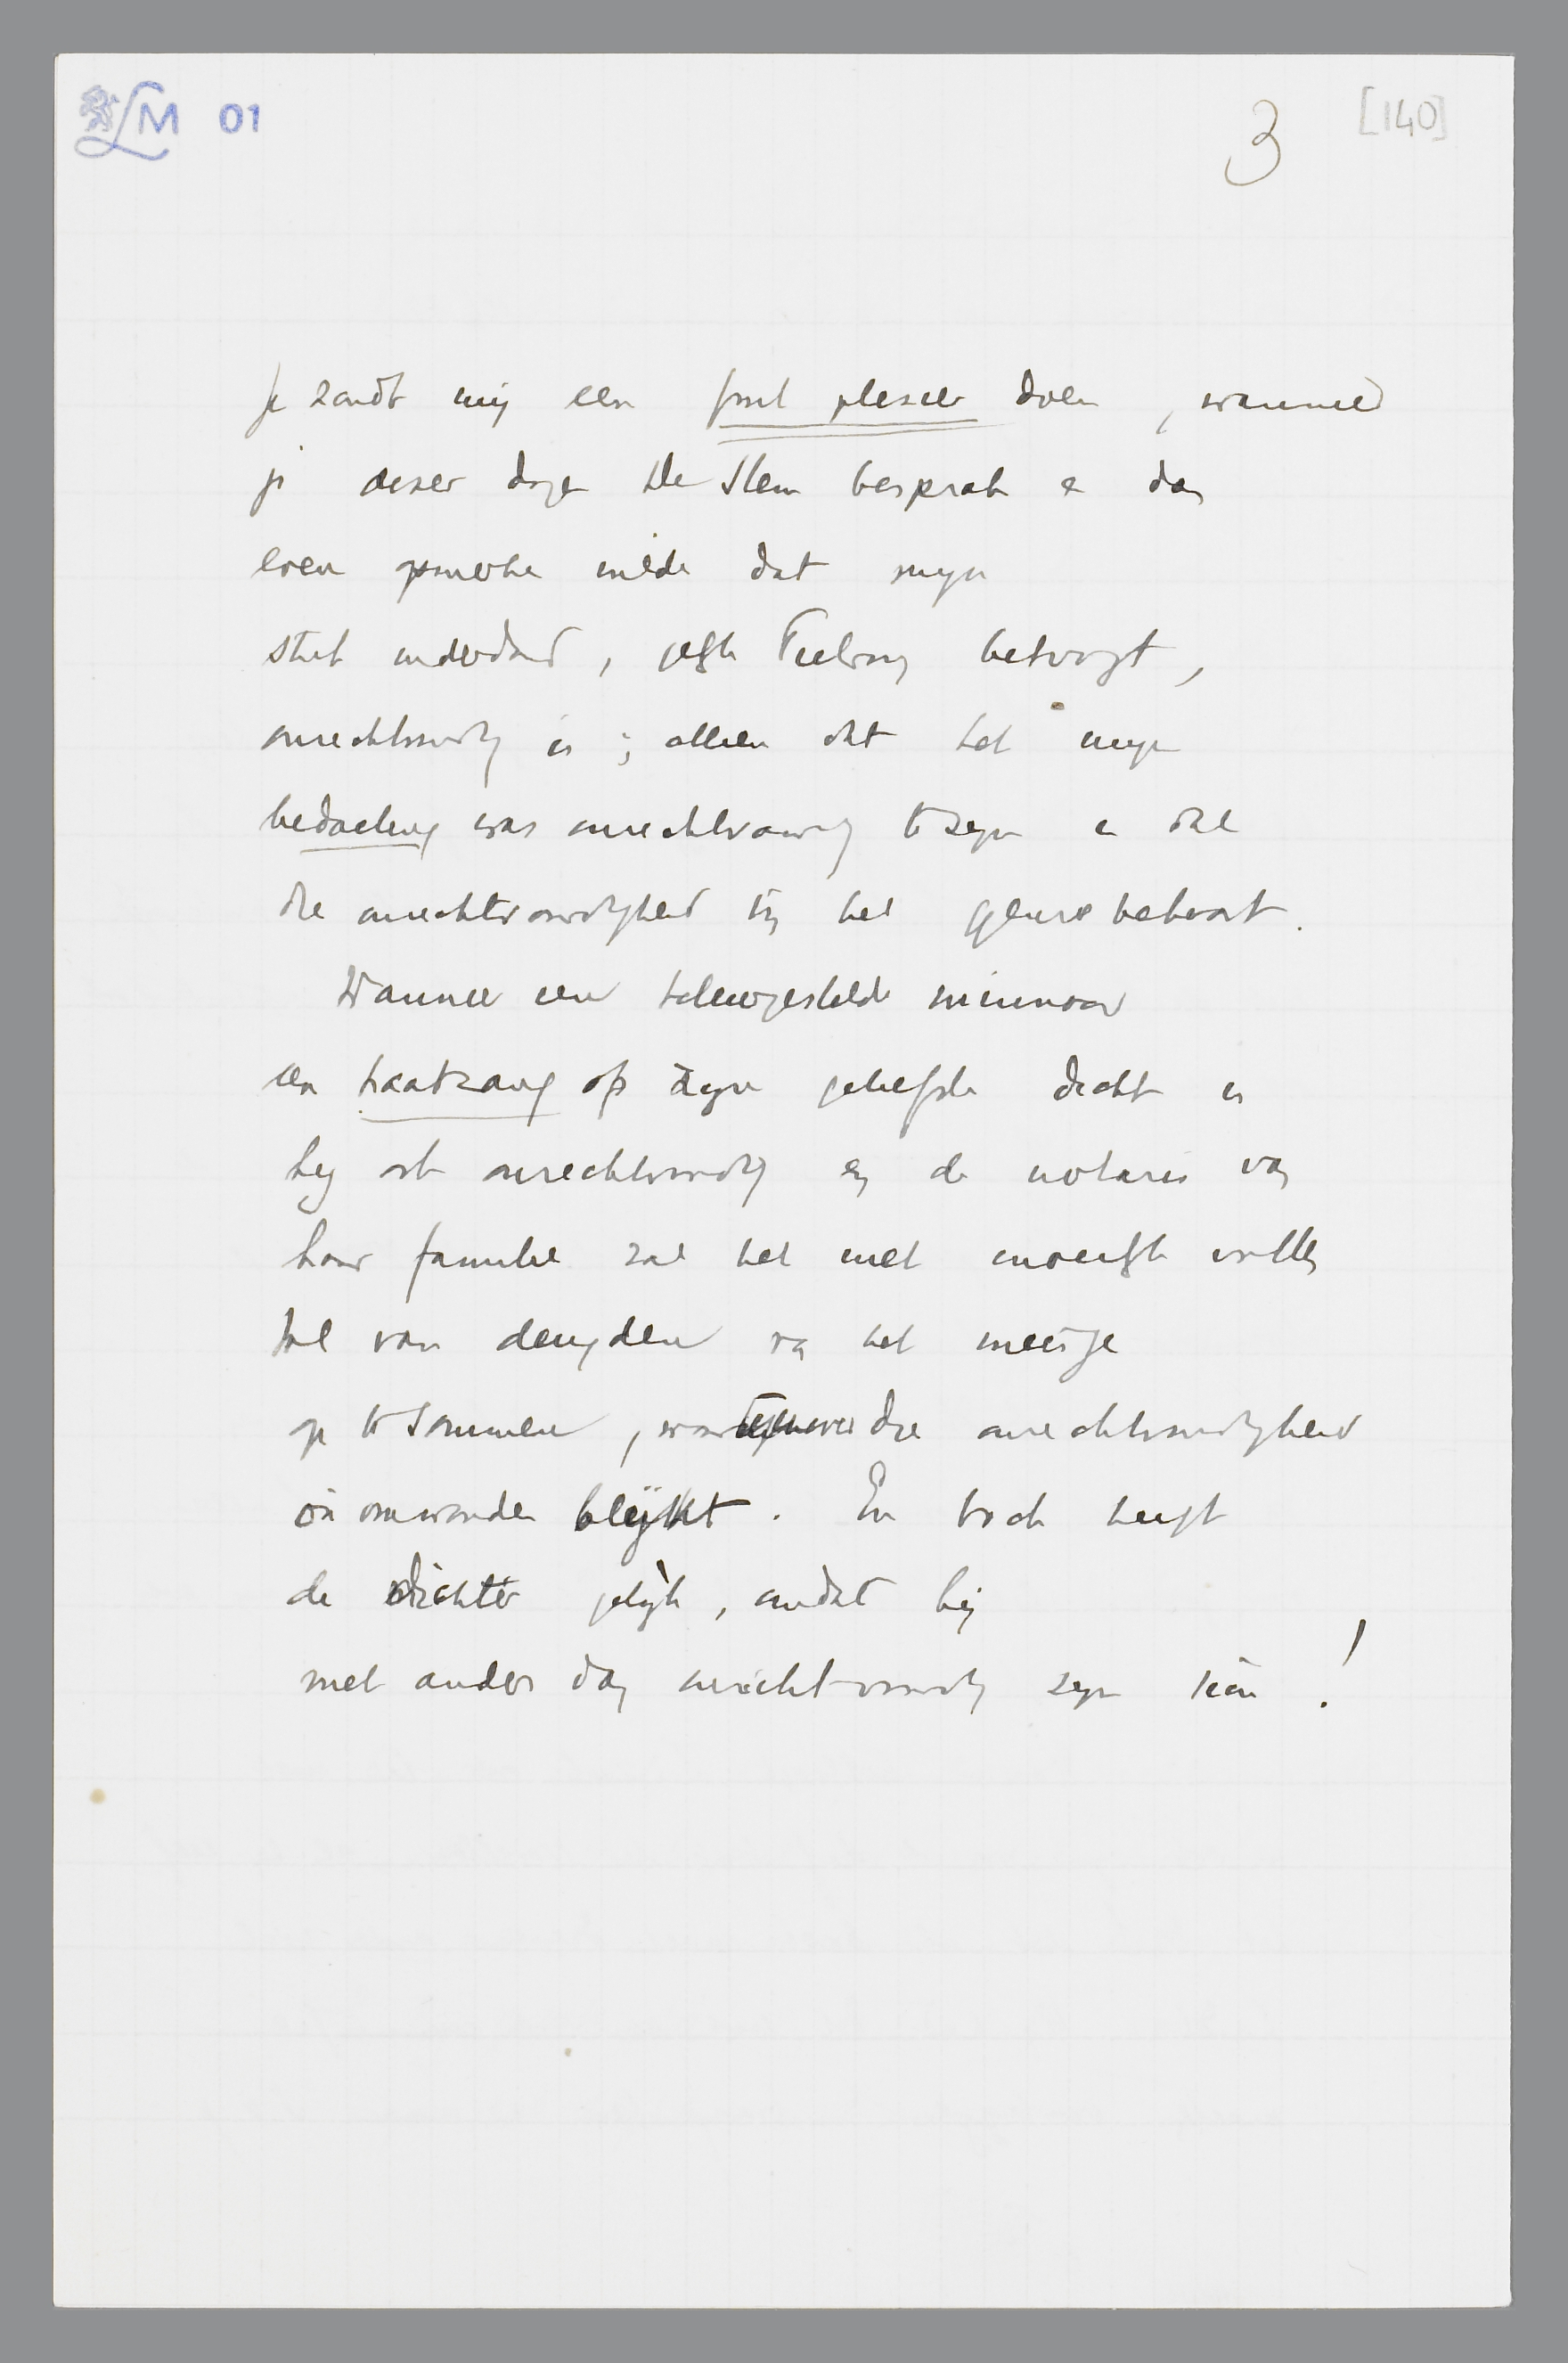 LM 01
3 [140]
Je zoudt mij een groot plezier doen, wanneer
je dezer dagen De Stem besprak en dan
even opmerken wilde dat mijn
stuk inderdaad, gelijk betoogt,
onrechtvaardig is; alleen dat het mijn
bedoeling was onrechtvaardig te zijn en dat
die onrechtvaardigheid bij het genre behoort.
Wanneer een teleurgesteld minnaar
een haatzang op zijn geliefde dicht is
hij ook onrechtvaardig en de notaris van
haar familie zal het niet moeilijk vallen
tal van deugden van het meisje
op te sommen, waartegenover die onrechtvaardigheid
onomwonden blijkt. En toch heeft
de dichter gelijk, omdat hij
niet anders dan onrechtvaardig zijn kàn!